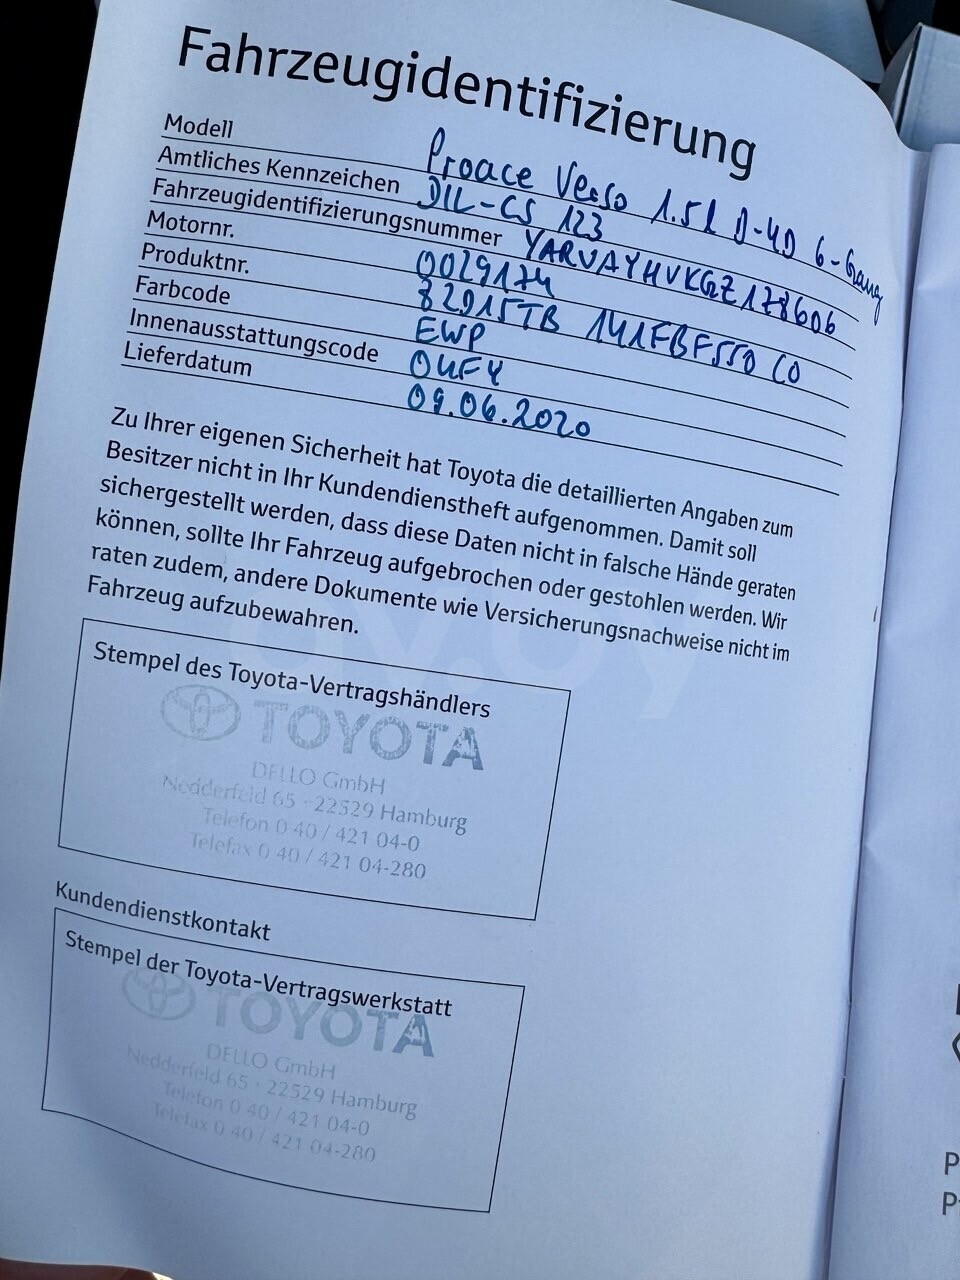 Fahrzeugidentifizierung
Modell Proace Verso 1.5l D-4D 6-Gang
Amtliches Kennzeichen DIL-CS 123
Fahrzeugidentifizierungsnummer YARVAYHVKGZ178606
Motornr. 0029174
Produktnr. 82915TB 141FBF550 CO
Farbcode EWP
Innenausstattungscode 04FY
Lieferdatum 09.06.2020
Zu Ihrer eigenen Sicherheit hat Toyota die detaillierten Angaben zum
Besitzer nicht in Ihr Kundendienstheft aufgenommen. Damit soll
sichergestellt werden, dass diese Daten nicht in falsche Hände geraten
können, sollte Ihr Fahrzeug aufgebrochen oder gestohlen werden. Wir
raten zudem, andere Dokumente wie Versicherungsnachweise nicht im
Fahrzeug aufzubewahren.
av.by
Stempel des Toyota-Vertragshändlers
TOYOTA
DELLO GmbH
Nedderfeld 65 · 22529 Hamburg
Telefon 0 40 / 421 04-0
Telefax 0 40 / 421 04-280
Kundendienstkontakt
Stempel der Toyota-Vertragswerkstatt
TOYOTA
DELLO GmbH
Nedderfeld 65 · 22529 Hamburg
Telefon 0 40 / 421 04-0
Telefax 0 40 / 421 04-280